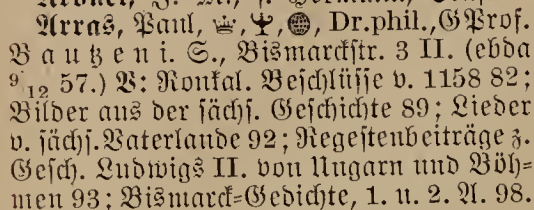 Arras, Paul, Dr.phil., GProf.
Bautzen i. S., Bismarckstr. 3 II. (ebda
9/12 57.) V: Ronkal. Beschlüsse v. 1158 82;
Bilder aus der sächs. Geschichte 89; Lieder
v. sächs. Vaterlande 92; Regestenbeiträge z.
Gesch. Ludwigs II. von Ungarn und Böh-
men 93; Bismarck-Gedichte, 1. u. 2. A. 98.